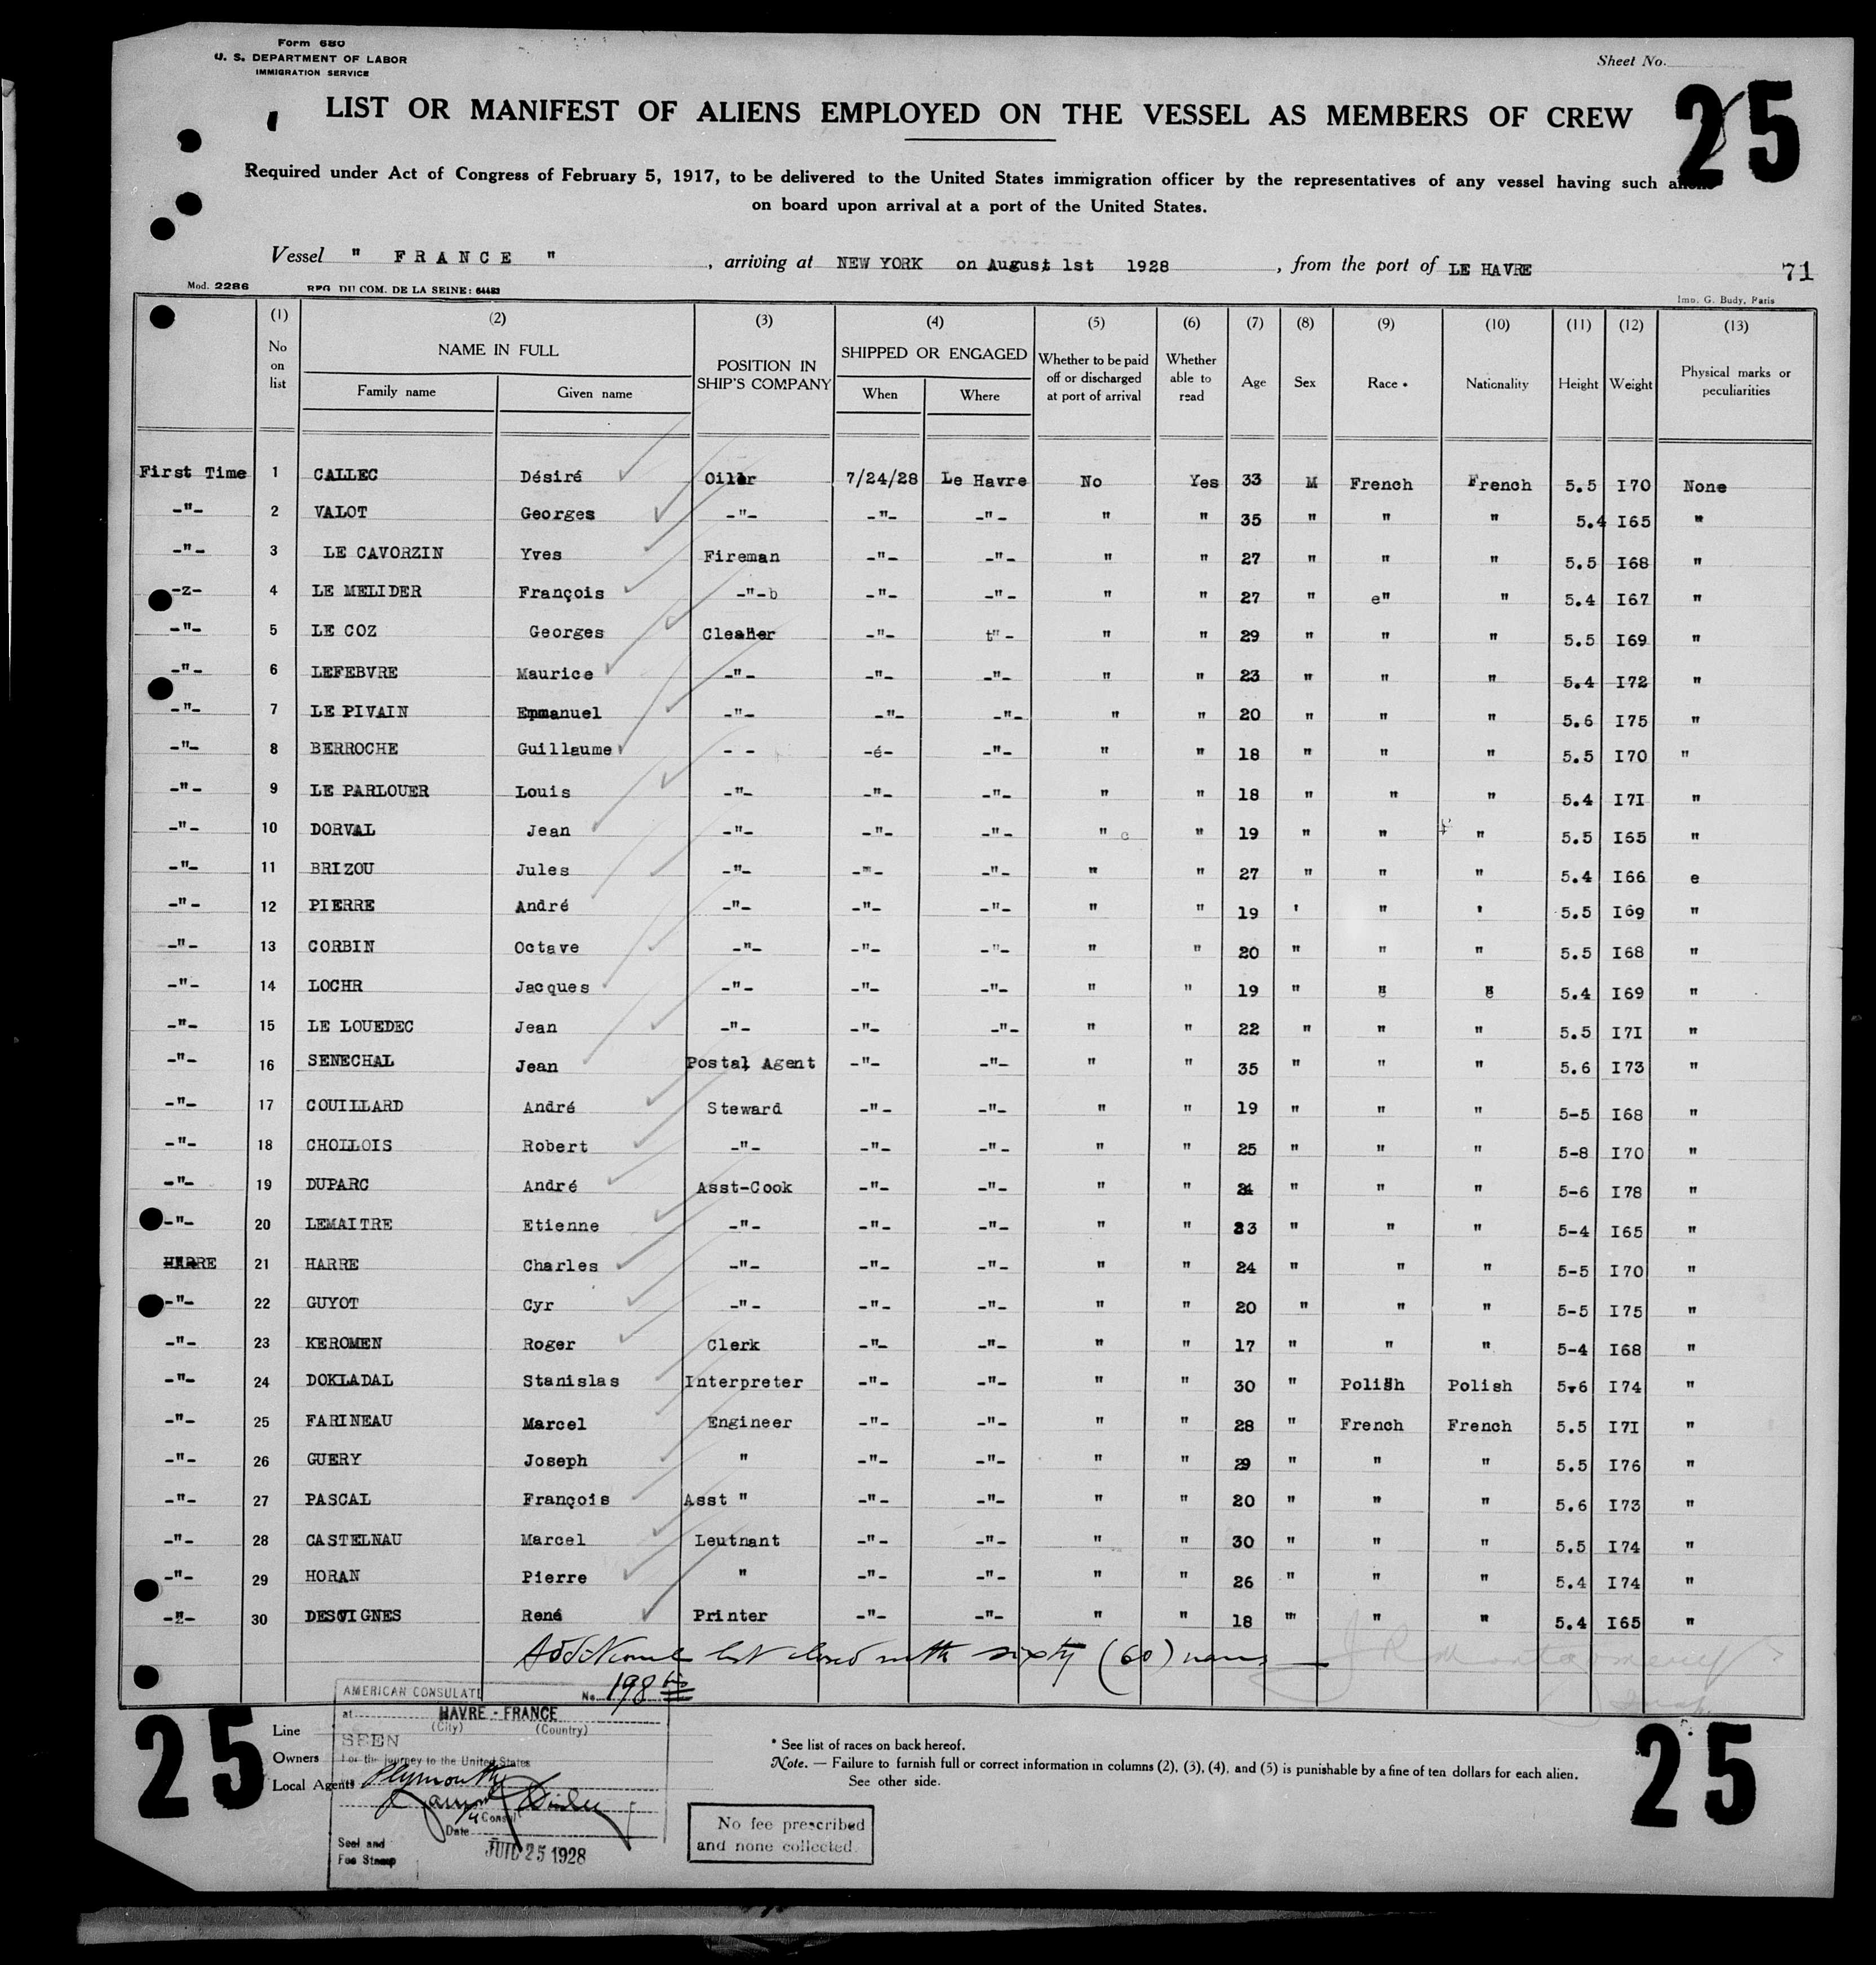 Form 680
U. S. DEPARTMENT OF LABOR
IMMIGRATION SERVICE
Sheet No.
25
LIST OR MANIFEST OF ALIENS EMPLOYED ON THE VESSEL AS MEMBERS OF CREW
Required under Act of Congress of February 5, 1917, to be delivered to the United States immigration officer by the representatives of any vessel having such aliens
on board upon arrival at a port of the United States.
Vessel " FRANCE " , arriving at NEW YORK on August 1st 1928 , from the port of LE HAVRE
71
Mod. 2286 REG. DU COM. DE LA SEINE: 64483 Imp. G. Budy, Paris
(1) (2) (3) (4) (5) (6) (7) (8) (9) (10) (11) (12) (13)
No on list NAME IN FULL Family name Given name POSITION IN SHIP'S COMPANY SHIPPED OR ENGAGED When Where Whether to be paid off or discharged at port of arrival Whether able to read Age Sex Race * Nationality Height Weight Physical marks or peculiarities
First Time 1 CALLEC Désiré Oiler 7/24/28 Le Havre No Yes 33 M French French 5.5 I70 None
-"- 2 VALOT Georges -"- -"- -"- " " 35 " " " 5.4 I65 "
-"- 3 LE CAVORZIN Yves Fireman -"- -"- " " 27 " " " 5.5 I68 "
-z- 4 LE MELIDER François -"-b -"- -"- " " 27 " e" " 5.4 I67 "
-"- 5 LE COZ Georges Cleaner -"- t"- " " 29 " " " 5.5 I69 "
-"- 6 LEFEBVRE Maurice -"- -"- -"- " " 23 " " " 5.4 I72 "
-"- 7 LE PIVAIN Emmanuel -"- -"- -"- " " 20 " " " 5.6 I75 "
-"- 8 BERROCHE Guillaume - - -é- -"- " " 18 " " " 5.5 I70 "
-"- 9 LE PARLOUER Louis -"- -"- -"- " " 18 " " " 5.4 I7I "
-"- 10 DORVAL Jean -"- -"- -"- " c " 19 " " " 5.5 I65 "
-"- 11 BRIZOU Jules -"- -"- -"- " " 27 " " " 5.4 I66 e
-"- 12 PIERRE André -"- -"- -"- " " 19 ' " ' 5.5 I69 "
-"- 13 CORBIN Octave -"- -"- -"- " " 20 " " " 5.5 I68 "
-"- 14 LOCHR Jacques -"- -"- -"- " " 19 " " " 5.4 I69 "
-"- 15 LE LOUEDEC Jean -"- -"- -"- " " 22 " " " 5.5 I7I "
-"- 16 SENECHAL Jean Postal Agent -"- -"- " " 35 " " " 5.6 I73 "
-"- 17 COUILLARD André Steward -"- -"- " " 19 " " " 5-5 I68 "
-"- 18 CHOLLOIS Robert -"- -"- -"- " " 25 " " " 5-8 I70 "
-"- 19 DUPARC André Asst-Cook -"- -"- " " " " " 5-6 I78 "
-"- 20 LEMAITRE Etienne -"- -"- -"- " " 23 " " " 5-4 I65 "
HARRE 21 HARRE Charles -"- -"- -"- " " 24 " " " 5-5 I70 "
-"- 22 GUYOT Cyr -"- -"- -"- " " 20 " " " 5-5 I75 "
-"- 23 KEROMEN Roger Clerk -"- -"- " " 17 " " " 5-4 I68 "
-"- 24 DOKLADAL Stanislas Interpreter -"- -"- " " 30 " Polish Polish 5.6 I74 "
-"- 25 FARINEAU Marcel Engineer -"- -"- " " 28 " French French 5.5 I7I "
-"- 26 GUERY Joseph " -"- -"- " " 29 " " " 5.5 I76 "
-"- 27 PASCAL François Asst " -"- -"- " " 20 " " " 5.6 I73 "
-"- 28 CASTELNAU Marcel Leutnant -"- -"- " " 30 " " " 5.5 I74 "
-"- 29 HORAN Pierre " -"- -"- " " 26 " " " 5.4 I74 "
-"- 30 DESVIGNES René Printer -"- -"- " " 18 " " " 5.4 I65 "
Additional list closed with sixty (60) names
AMERICAN CONSULATE No. 198
at HAVRE - FRANCE
(City) (Country)
SEEN
For the journey to the United States
Plymouth
Consul
Date
JUIL 25 1928
Seal and
Fee Stamp
25
Line
Owners
Local Agents
* See list of races on back hereof.
Note. — Failure to furnish full or correct information in columns (2), (3), (4), and (5) is punishable by a fine of ten dollars for each alien.
See other side.
No fee prescribed
and none collected.
25